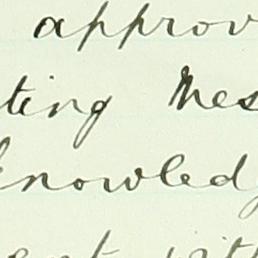 approv
ting Mes
knowled